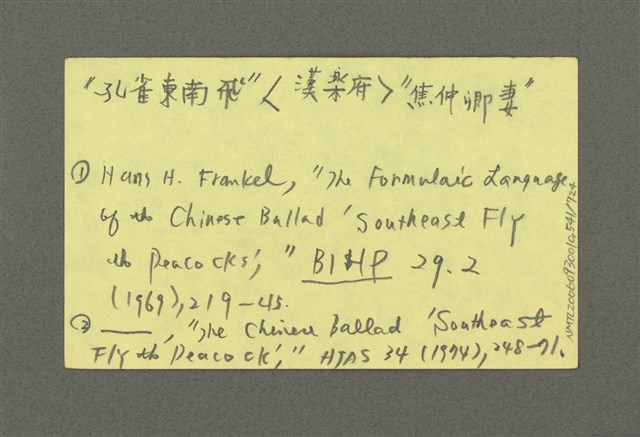 "孔雀東南飛"〈漢樂府〉"焦仲卿妻"
① Hans H. Frankel, "The Formulaic Language
of the Chinese Ballad 'Southeast Fly
the Peacocks', " BIHP 29.2
(1969), 219-45.
② ——, "The Chinese Ballad 'Southeast
Fly the Peacock', " HJAS 34 (1974), 248-71.
NMTL20060930019541/724